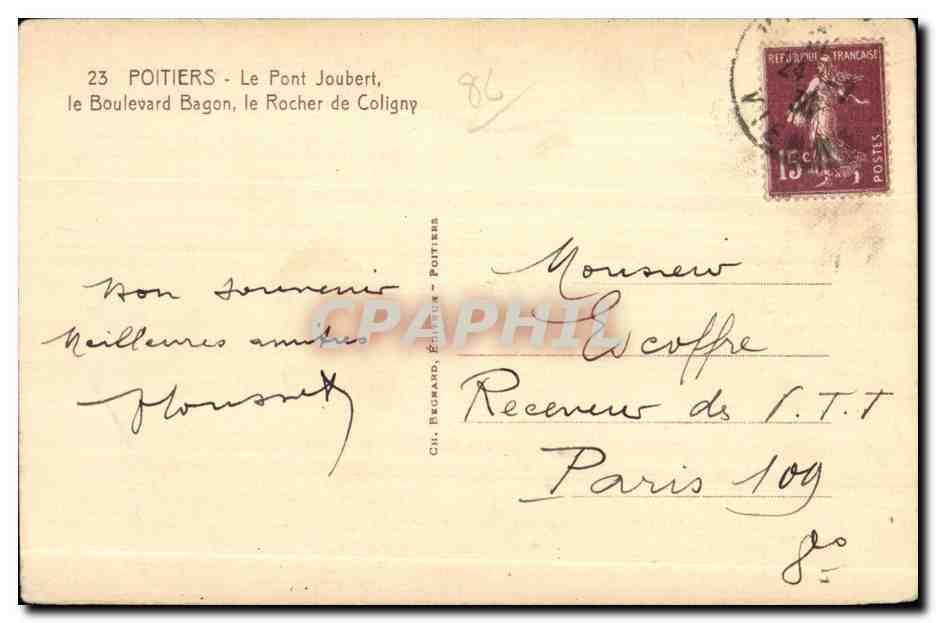 23 POITIERS - Le Pont Joubert,
le Boulevard Bagon, le Rocher de Coligny
86
REPUBLIQUE FRANCAISE
15 c
POSTES
Bon souvenir
Meilleures amitiés
CH. BEGNARD, ÉDITEUR - POITIERS
CPAPHIL
Monsieur
Escoffre
Receveur des P.T.T
Paris 109